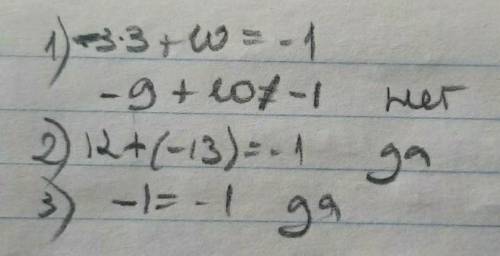 1) -3·3 + 10 = -1
-9 + 10 ≠ -1 нет
2) 12 + (-13) = -1 да
3) -1 = -1 да